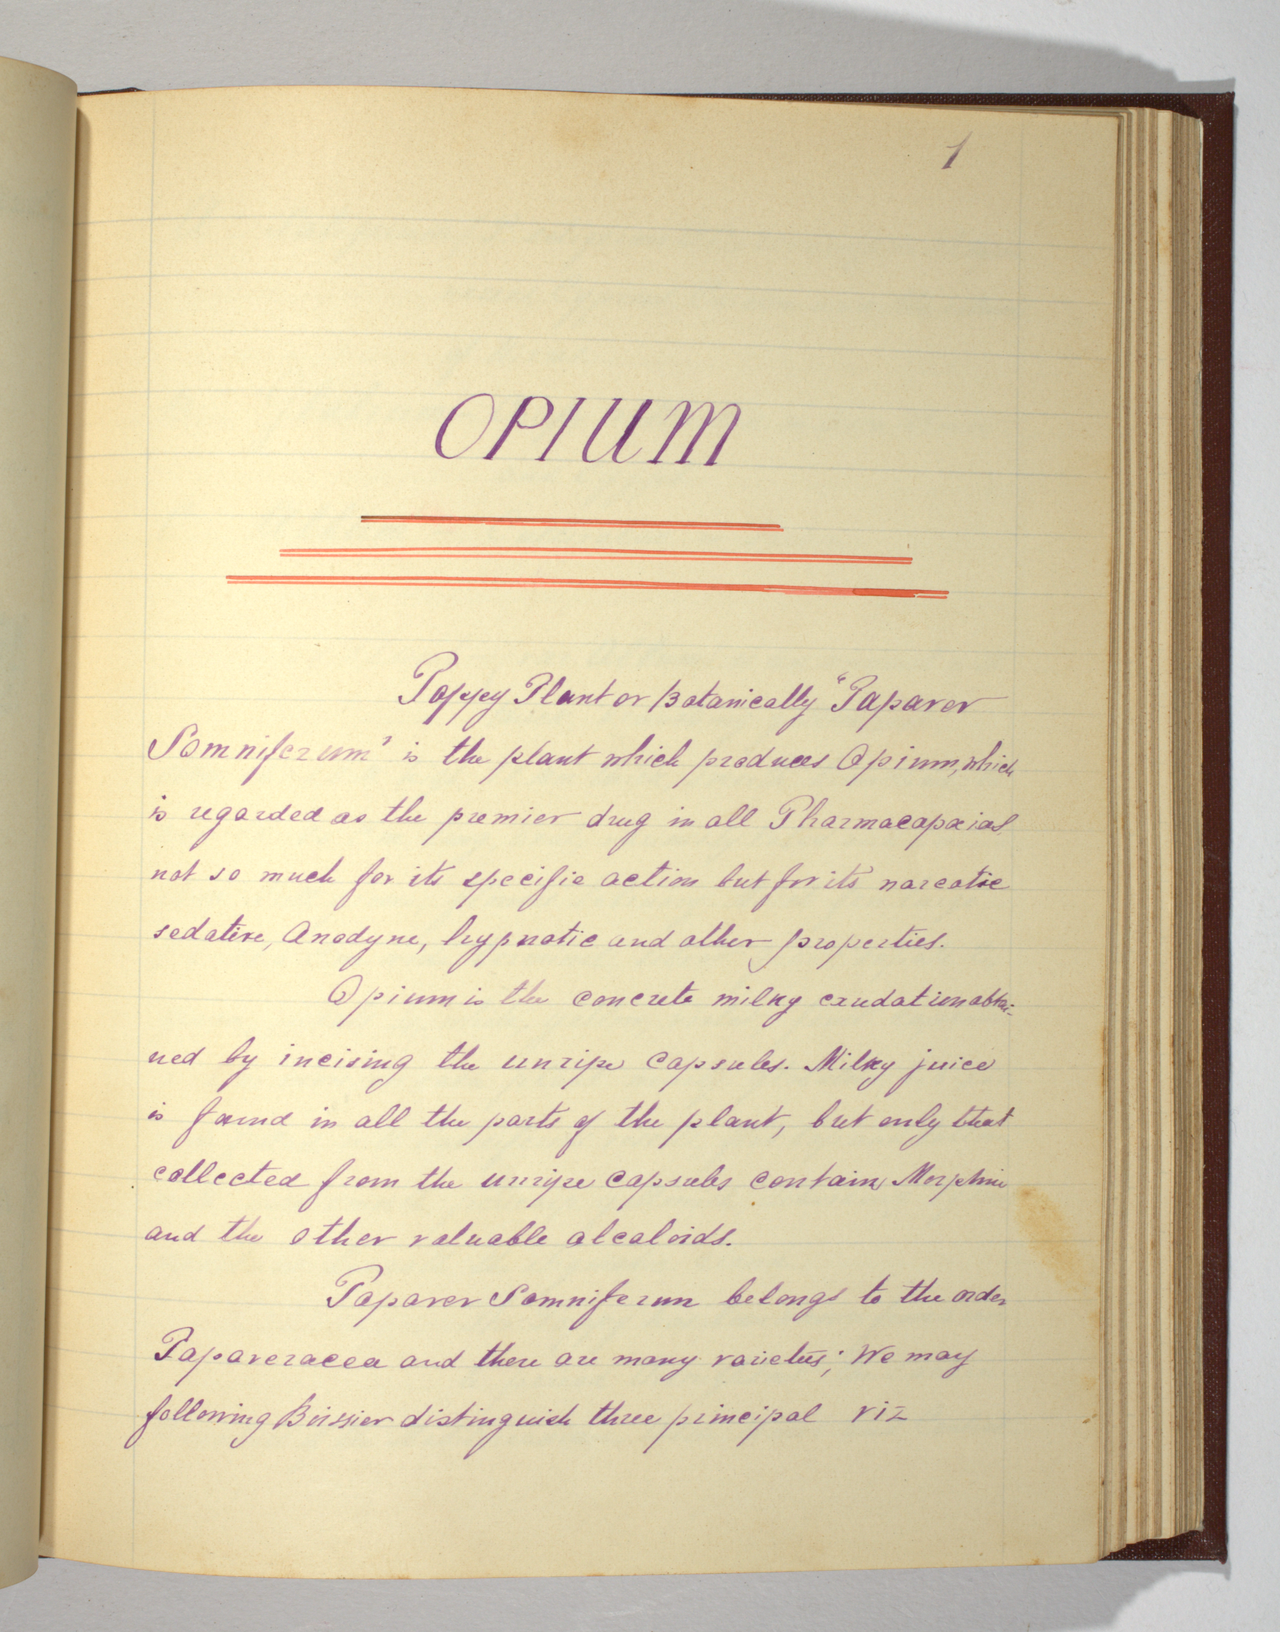 1
OPIUM
Poppy Plant or Botanically "Papaver
Somniferum" is the plant which produces Opium, which
is regarded as the premier drug in all Pharmacopœias
not so much for its specific action but for its narcotic
sedative, Anodyne, hypnotic and other properties.
Opium is the concrete milky exudation obtai-
ned by incising the unripe capsules. Milky juice
is found in all the parts of the plant, but only that
collected from the unripe capsules contain Morphine
and the other valuable alcaloids.
Papaver Somniferum belongs to the order
Papaveracea and there are many varieties; We may
following Boissier distinguish three principal viz